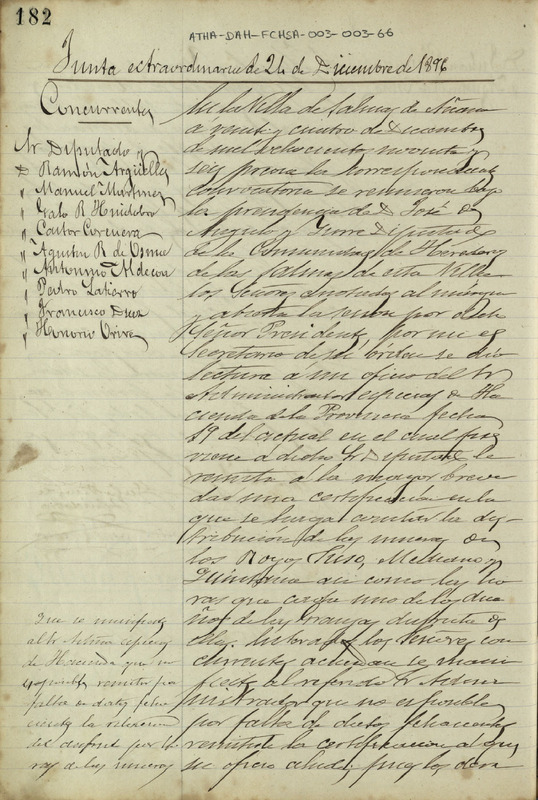 182
ATHA-DAH-FCHSA-003-003-66
Junta extraordinaria de 24 de Diciembre de 1896
Concurrentes
Sr Diputado y
D Ramón Argüelles
" Manuel Martinez
" Galo R Huidobro
" Castor Corcuera
" Agustin R de Osma
" Anttonino Aldecoa
" Pedro
" Francisco
" Honorio Urive
En la Villa de Salinas de Añana
a veinte y cuatro de Diciembre
de mil ochocientos noventa y
seis previa la correspondiente
convocatoria se reunieron bajo
la presidencia de D José de
Angulo y Diputado
de la Comunidad de Herederos
de las Salinas de esta Villa
los Señores anotados al márgen
y abierta la sesion por dicho
Señor Presidente, por mi el
Secretario de su orden se dio
lectura a un oficio del Sr
Administrador especial de Ha
cienda de la Provincia fecha
19 del actual en el cual pre
viene a dicho Sr Diputado le
remita a la mayor breve
dad una certificacion en la
que se haga constar la dis-
tribucion de las mueras de
los Royos Suso, Mediano y
Quintana asi como las ho
ras que cada uno de los due
ños de las granjas disfruta de
ellas. Enterados los Señores con
currentes acuerdan se mani
fieste al referido Sr Admi
nistrador que no es posible
por falta de datos fehacientes
remitir la certificacion al que
su oficio alude, pues los
Que se manifieste
al Sr Admon especial
de Hacienda que no
es posible remitir por
falta de datos feha
cientes la relacion
del disfrute por ho
ras de las mueras